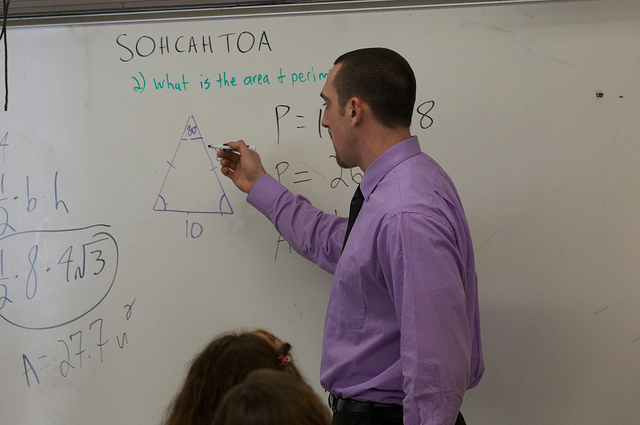 SOHCAHTOA
2) What is the area + perim
P = 1 8
P = 26
10
1/2 · b · h
1/2 · 8 · 4√3
A = 27.7 u²